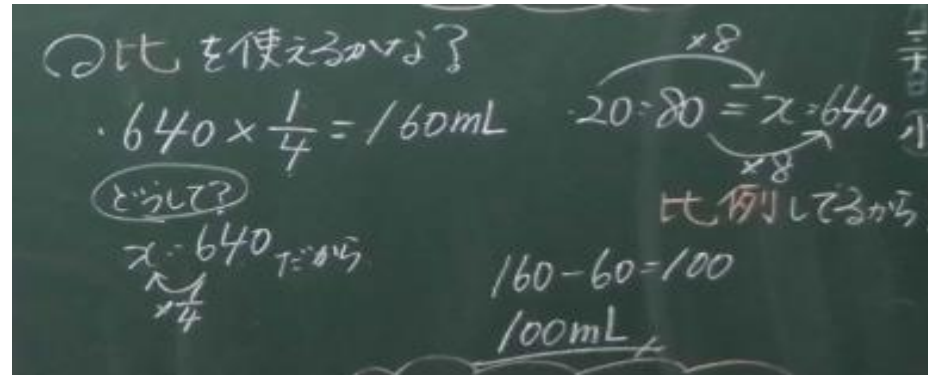 〇比を使えるかな?
・640×1/4=160mL
どうして?
x:640だから
×1/4
×8
・20:80=x:640
×8
比例してるから
160-60=100
100mL